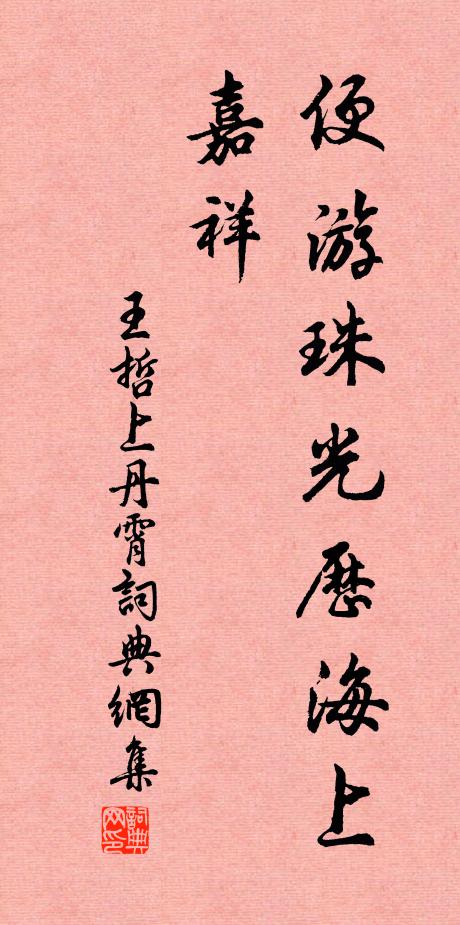 便游珠光歷海上
嘉祥
王哲上丹霄詞典網集
詞典
网印